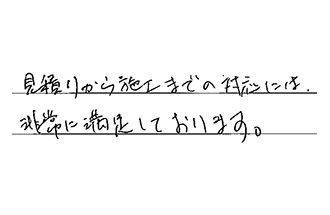 見積りから施工までの対応には、
非常に満足しております。